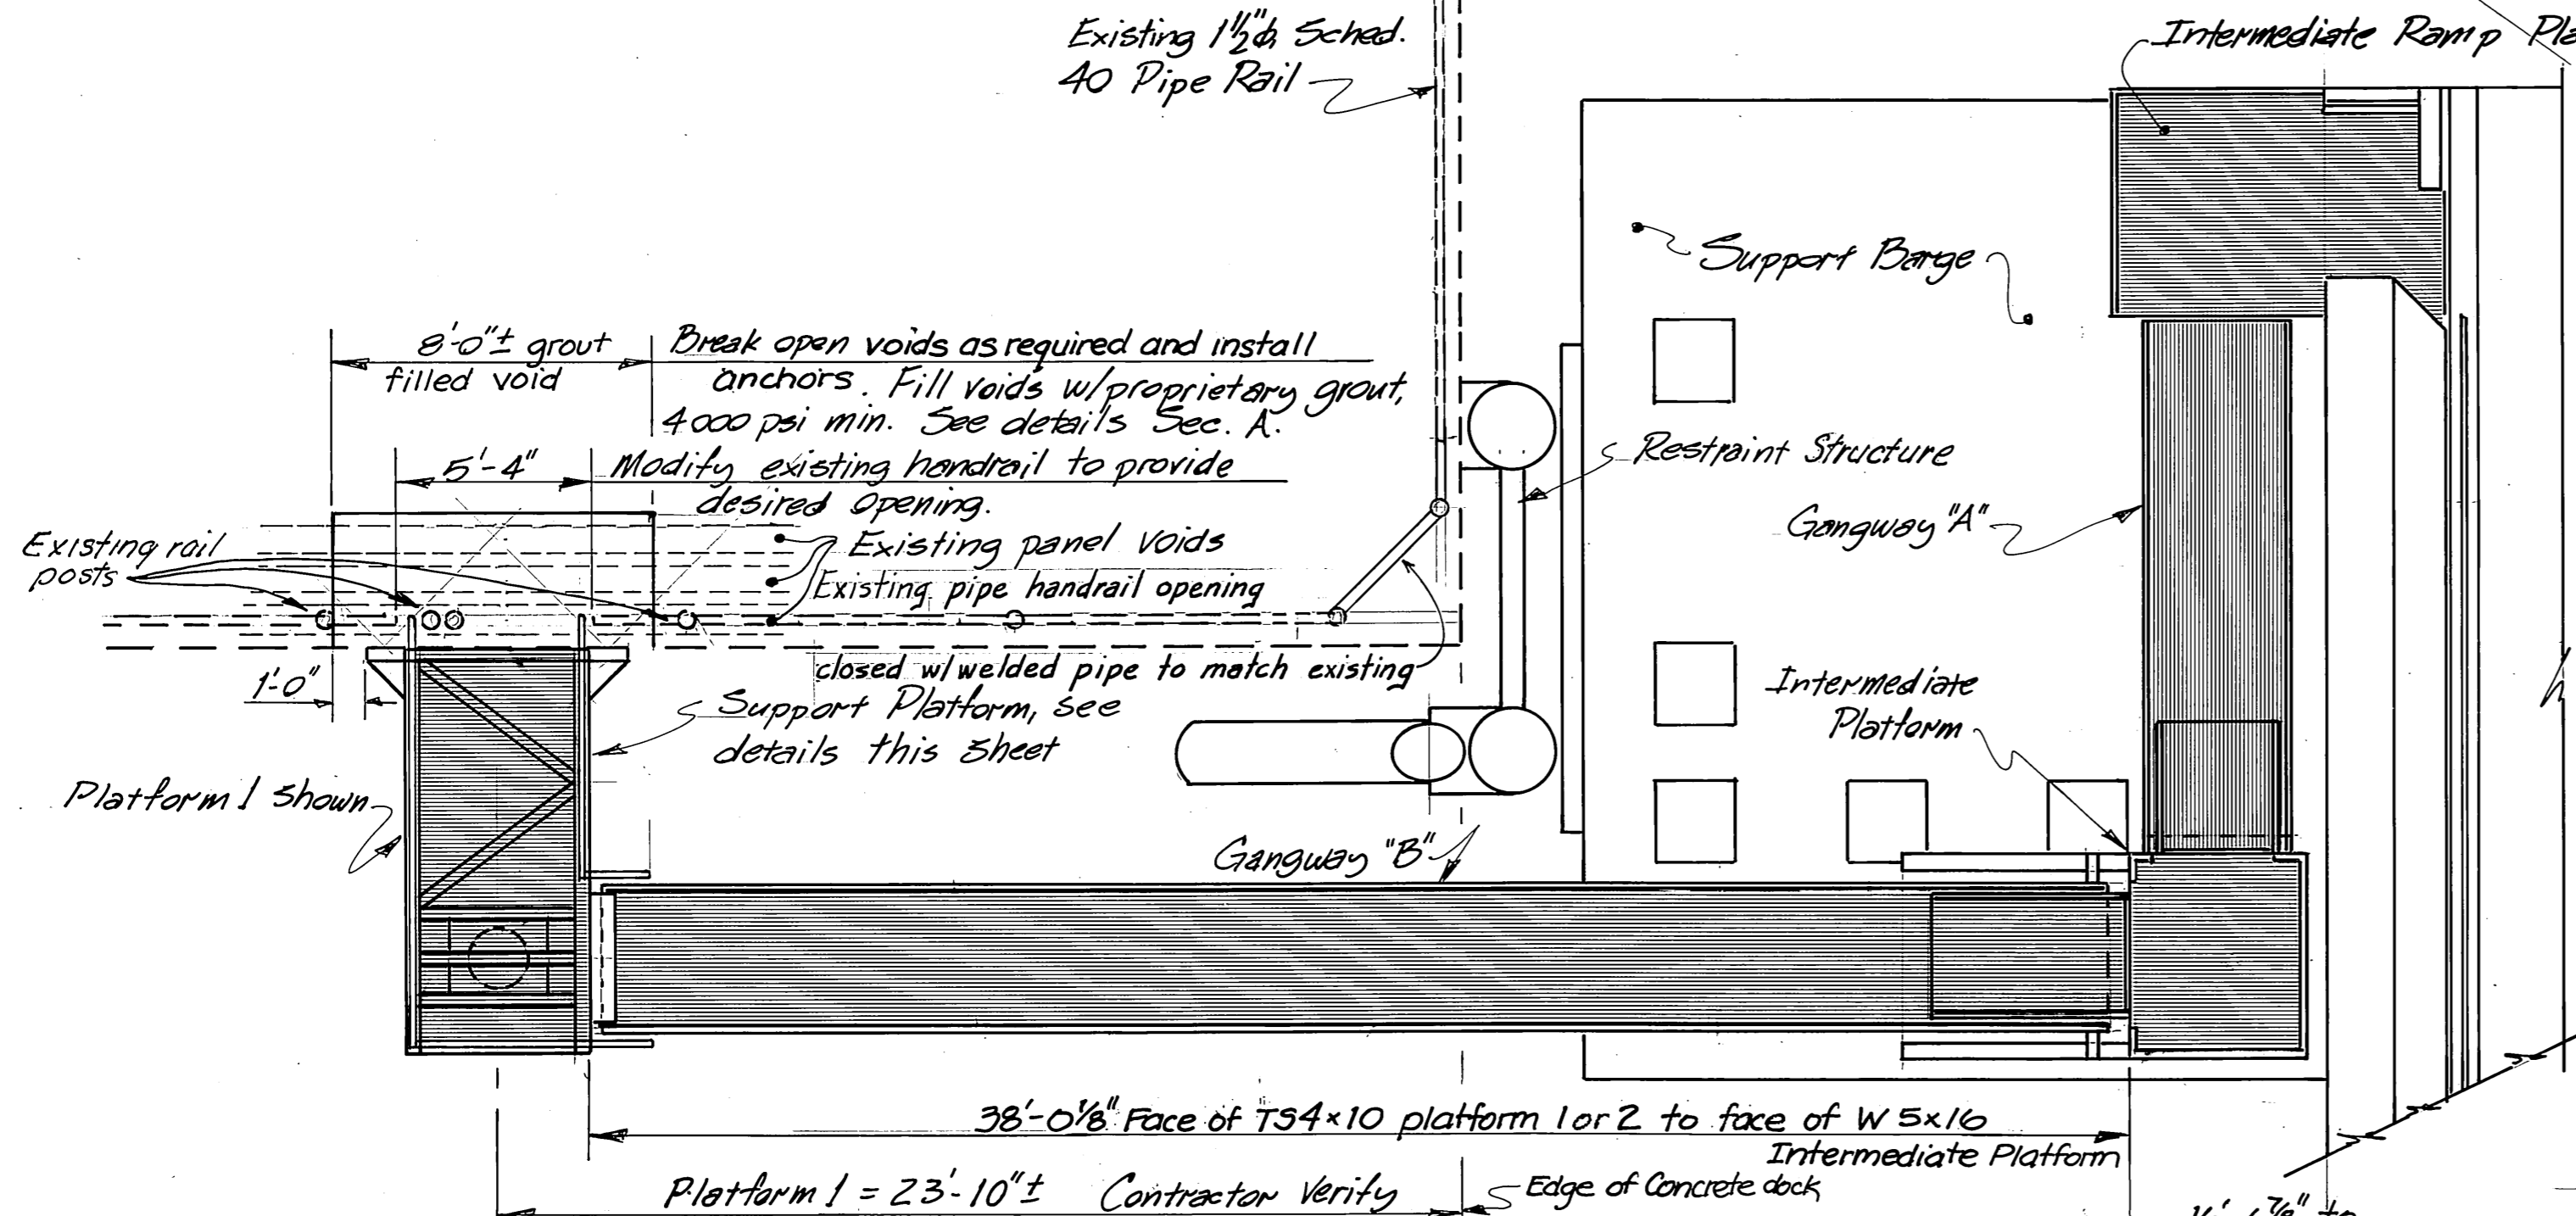 Existing 1½"ф Sched.
40 Pipe Rail
Intermediate Ramp
Support Barge
8'-0"± grout
filled void
Break open voids as required and install
anchors. Fill voids w/proprietary grout,
4000 psi min. See details Sec. A.
5'-4"
Modify existing handrail to provide
desired opening.
Restraint Structure
Gangway "A"
Existing rail
posts
Existing panel voids
Existing pipe handrail opening
closed w/welded pipe to match existing
1'-0"
Support Platform, see
details this sheet
Intermediate
Platform
Platform 1 shown
Gangway "B"
38'-0⅛" Face of TS4×10 platform 1 or 2 to face of W 5×16
Intermediate Platform
Platform 1 = 23'-10"± Contractor Verify
Edge of Concrete dock